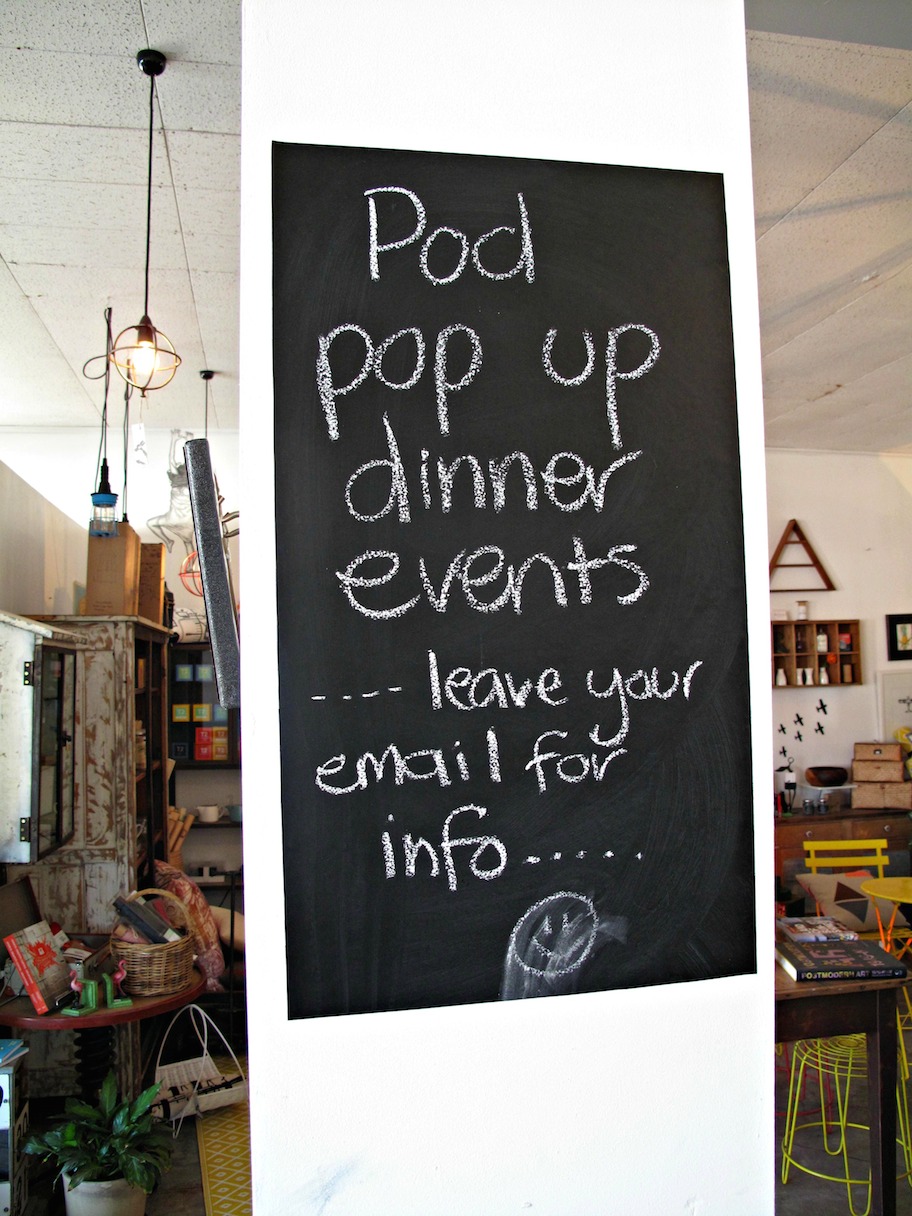 Pod
pop up
dinner
events
---- leave your
email for
info.....
POSTMODERN ART